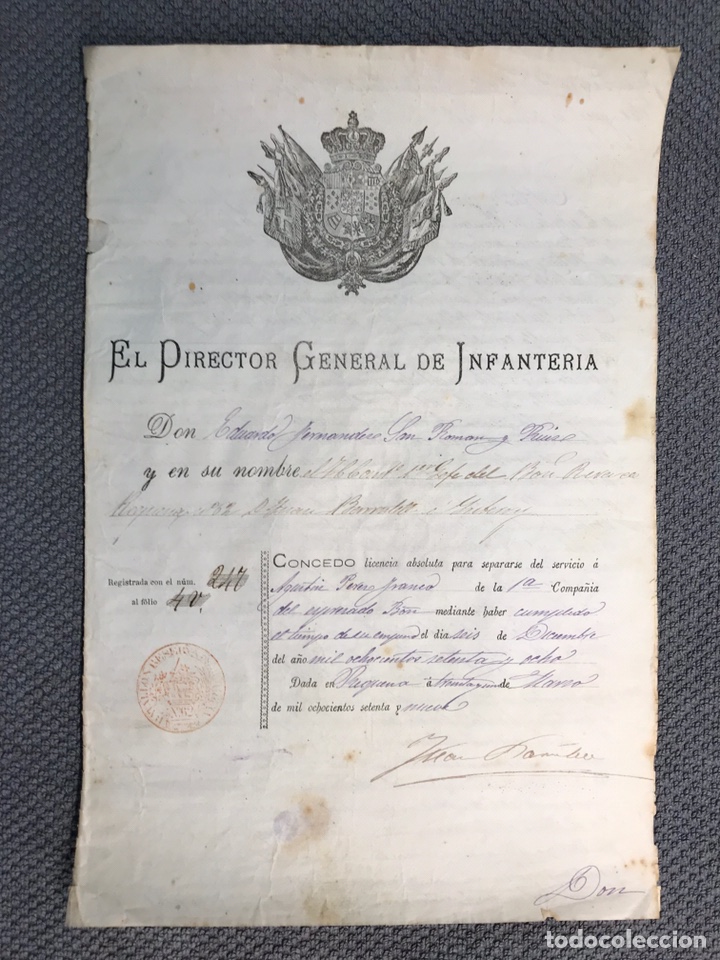 EL DIRECTOR GENERAL DE INFANTERIA
Don Eduardo Fernandez San Roman y Ruiz
y en su nombre el Jefe del Bon Reserva
Requena nº 82 D. Juan
Registrada con el núm. 217
al fólio 4 v.
CONCEDO licencia absoluta para separarse del servicio á
Agustin Perez Franco de la 1ª Compañia
del espresado Bon mediante haber cumplido
el tiempo de su el dia seis de Diciembre
del año mil ochocientos setenta y ocho
Dada en Requena á treinta y uno de Marzo
de mil ochocientos setenta y nueve
Juan
Don
todocoleccion
todocoleccion.net